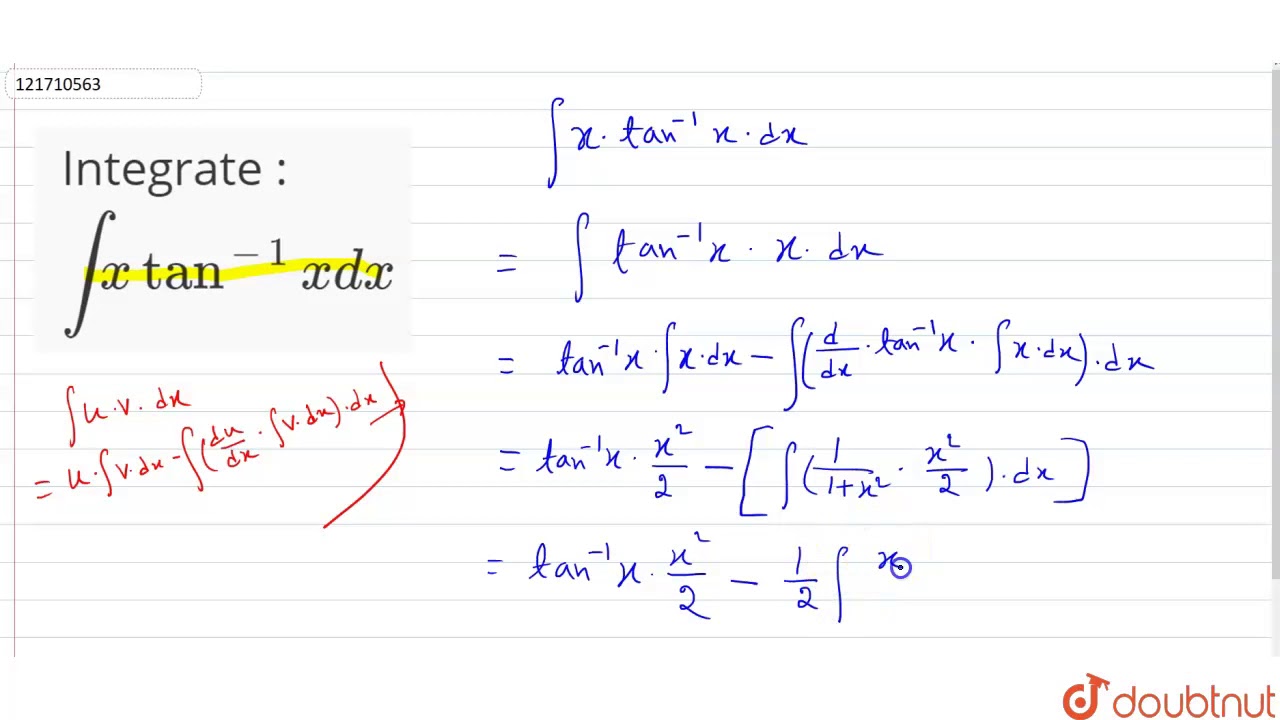 121710563
Integrate :
∫x tan⁻¹ xdx
∫u·v·dx
= u·∫v·dx − ∫(du/dx · ∫v·dx)·dx
∫x· tan⁻¹ x·dx
= ∫ tan⁻¹x · x· dx
= tan⁻¹x · ∫x·dx − ∫(d/dx · tan⁻¹x · ∫x·dx)·dx
= tan⁻¹x · x²/2 − [∫(1/1+x² · x²/2)·dx]
= tan⁻¹x · x²/2 − 1/2 ∫ x
doubtnut